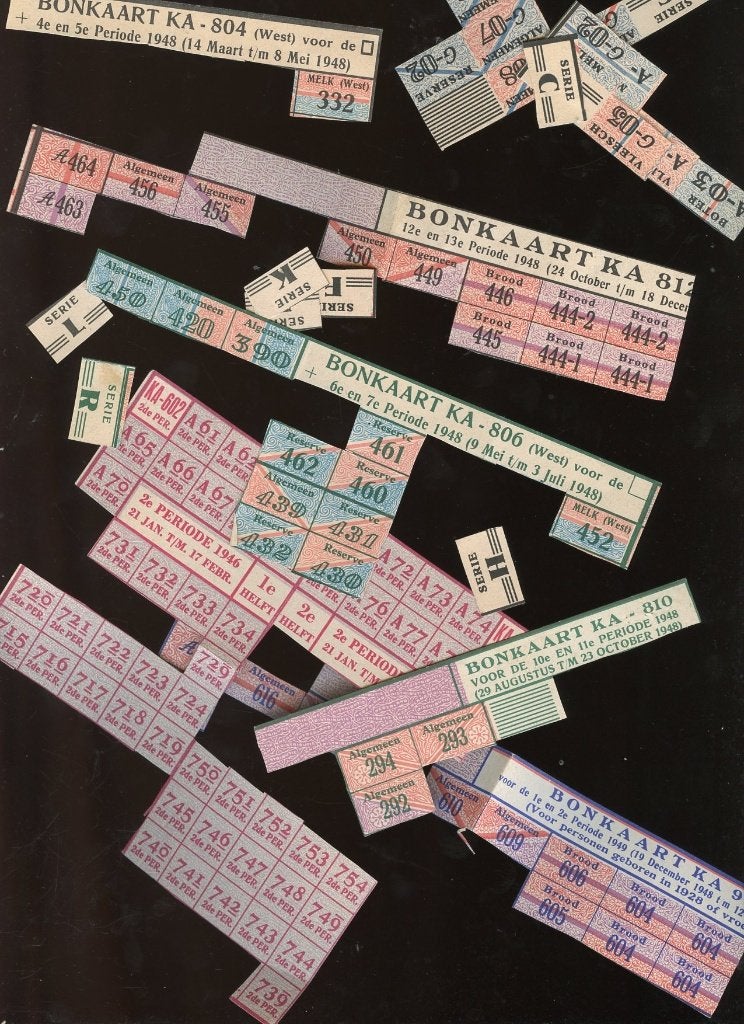 BONKAART KA - 804 (West) voor de
+ 4e en 5e Periode 1948 (14 Maart t/m 8 Mei 1948)
MELK (West)
332
G-07
ALGEMEEN
G-02
RESERVE
G-02
SERIE
C
SERIE
G-03
VLEESCH
A-03
BOTER
A464
A463
Algemeen
456
Algemeen
455
BONKAART KA 812
12e en 13e Periode 1948 (24 October t/m 18 Dece
Algemeen
450
Algemeen
449
Brood
446
Brood
444-2
Brood
444-2
Brood
445
Brood
444-1
Brood
444-1
SERIE
K
SERIE
SERIE
SERIE
L
Algemeen
450
Algemeen
420
Algemeen
390
BONKAART KA - 806 (West) voor de
+ 6e en 7e Periode 1948 (9 Mei t/m 3 Juli 1948)
MELK (West)
452
SERIE
R
KA-602
2de PER.
A 61
2de PER.
A 62
A 65
2de PER.
A 66
2de PER.
A 67
2de PER.
A 70
2de PER.
2e PERIODE 1946
21 JAN. T/M. 17 FEBR.
1e
HELFT
2e
HELFT
2e PERIOD
21 JAN. T/M.
731
2de PER.
732
2de PER.
733
2de PER.
734
2de PER.
A 72
2de PER.
A 73
2de PER.
A 74
2de PER.
76
2de PER.
A 77
2de PER.
KA
Reserve
462
Reserve
461
Algemeen
430
Reserve
460
Reserve
432
Reserve
431
Reserve
430
SERIE
H
720
2de PER.
721
2de PER.
722
2de PER.
723
2de PER.
724
2de PER.
715
2de PER.
716
2de PER.
717
2de PER.
718
2de PER.
719
2de PER.
729
2de PER.
Algemeen
616
BONKAART KA - 810
VOOR DE 10e EN 11e PERIODE 1948
(29 AUGUSTUS T/M 23 OCTOBER 1948)
Algemeen
294
Algemeen
293
Algemeen
292
750
2de PER.
751
2de PER.
752
2de PER.
753
2de PER.
754
2de PER.
745
2de PER.
746
2de PER.
747
2de PER.
748
2de PER.
749
2de PER.
740
2de PER.
741
2de PER.
742
2de PER.
743
2de PER.
744
2de PER.
739
2de PER.
BONKAART KA 9
voor de 1e en 2e Periode 1949 (19 December 1948 t/m 12
(Voor personen geboren in 1928 of vroe
Algemeen
610
Algemeen
609
Brood
606
Brood
604
Brood
604
Brood
605
Brood
604
Brood
604